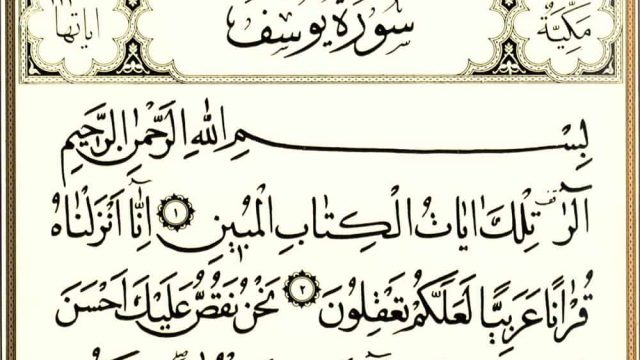 مَكِّيَّةٌ سُورَةُ يُوسُفَ اٰيَاتُهَا
بِسْمِ اللّٰهِ الرَّحْمٰنِ الرَّحِيمِ
الٓرٰ تِلْكَ اٰيَاتُ الْكِتَابِ الْمُبِينِ ١ اِنَّٓا اَنْزَلْنَاهُ
قُرْاٰنًا عَرَبِيًّا لَعَلَّكُمْ تَعْقِلُونَ ٢ نَحْنُ نَقُصُّ عَلَيْكَ اَحْسَنَ